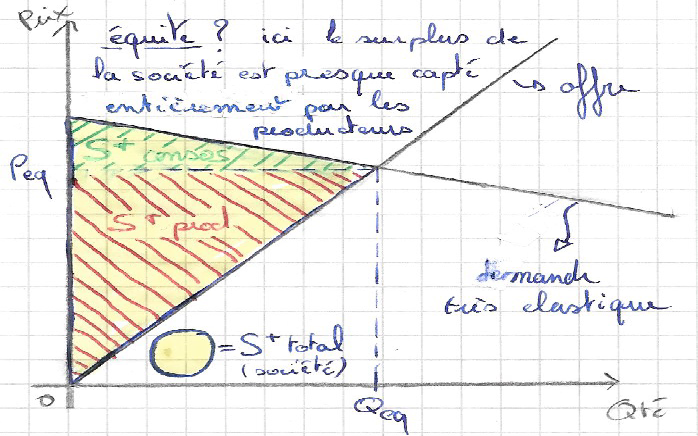 Prix
équité ? ici le surplus de
la société est presque capté
entièrement par les
producteurs
offre
S+ consos
Peq
S+ prod
demande
très elastique
= S+ total
(société)
O
Qeq
Qté